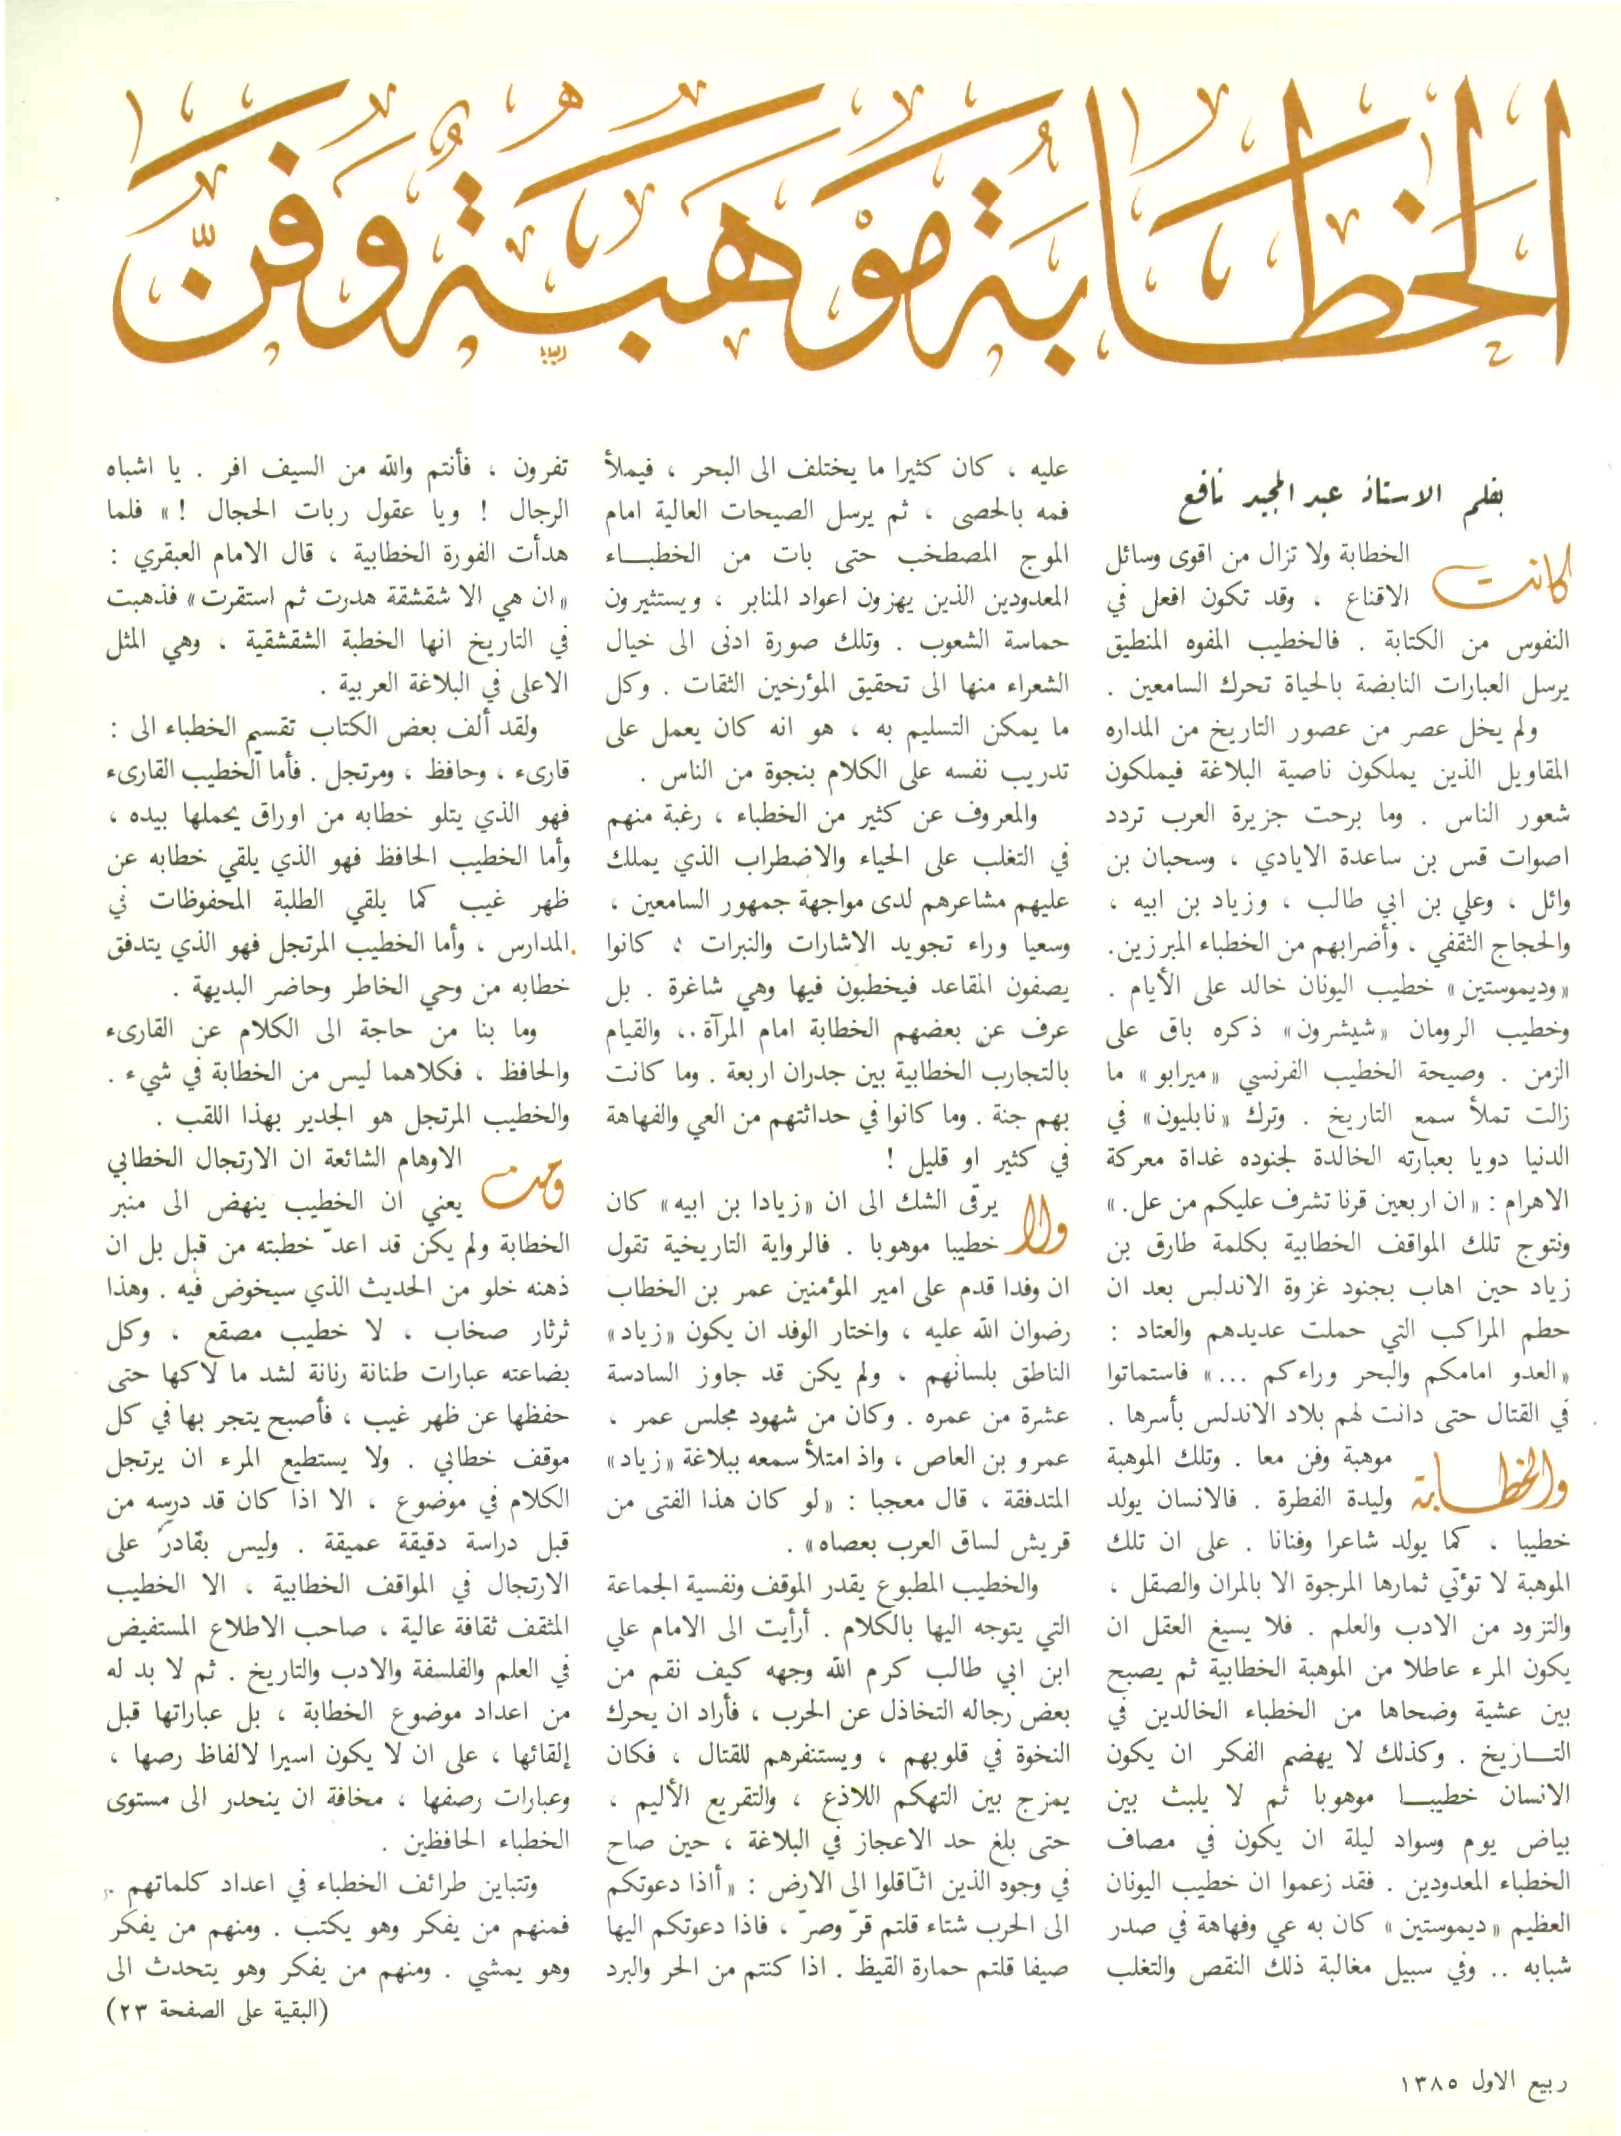 الخطابة موهبة وفنّ
بقلم الاستاذ عبد المجيد نافع
كانت الخطابة ولا تزال من اقوى وسائل
الاقناع ، وقد تكون افعل في
النفوس من الكتابة . فالخطيب المفوه المنطيق
يرسل العبارات النابضة بالحياة تحرك السامعين .
ولم يخل عصر من عصور التاريخ من المداره
المقاويل الذين يملكون ناصية البلاغة فيملكون
شعور الناس . وما برحت جزيرة العرب تردد
اصوات قس بن ساعدة الايادي ، وسحبان بن
وائل ، وعلي بن ابي طالب ، وزياد بن ابيه ،
والحجاج الثقفي ، وأضرابهم من الخطباء المبرزين.
«وديموستين» خطيب اليونان خالد على الأيام .
وخطيب الرومان «شيشرون» ذكره باق على
الزمن . وصيحة الخطيب الفرنسي «ميرابو» ما
زالت تملأ سمع التاريخ . وترك «نابليون» في
الدنيا دويا بعبارته الخالدة لجنوده غداة معركة
الاهرام : «ان اربعين قرنا تشرف عليكم من عل.»
ونتوج تلك المواقف الخطابية بكلمة طارق بن
زياد حين اهاب بجنود غزوة الاندلس بعد ان
حطم المراكب التي حملت عديدهم والعتاد :
«العدو امامكم والبحر وراءكم ...» فاستماتوا
في القتال حتى دانت لهم بلاد الاندلس بأسرها .
والخطابة موهبة وفن معا . وتلك الموهبة
وليدة الفطرة . فالانسان يولد
خطيبا ، كما يولد شاعرا وفنانا . على ان تلك
الموهبة لا تؤتي ثمارها المرجوة الا بالمران والصقل ،
والتزود من الادب والعلم . فلا يسيغ العقل ان
يكون المرء عاطلا من الموهبة الخطابية ثم يصبح
بين عشية وضحاها من الخطباء الخالدين في
التـــاريخ . وكذلك لا يهضم الفكر ان يكون
الانسان خطيبـــا موهوبا ثم لا يلبث بين
بياض يوم وسواد ليلة ان يكون في مصاف
الخطباء المعدودين . فقد زعموا ان خطيب اليونان
العظيم «ديموستين» كان به عي وفهاهة في صدر
شبابه .. وفي سبيل مغالبة ذلك النقص والتغلب
عليه ، كان كثيرا ما يختلف الى البحر ، فيملأ
فمه بالحصى ، ثم يرسل الصيحات العالية امام
الموج المصطخب حتى بات من الخطبـــاء
المعدودين الذين يهزون اعواد المنابر ، ويستثيرون
حماسة الشعوب . وتلك صورة ادنى الى خيال
الشعراء منها الى تحقيق المؤرخين الثقات . وكل
ما يمكن التسليم به ، هو انه كان يعمل على
تدريب نفسه على الكلام بنجوة من الناس .
والمعروف عن كثير من الخطباء ، رغبة منهم
في التغلب على الحياء والاضطراب الذي يملك
عليهم مشاعرهم لدى مواجهة جمهور السامعين ،
وسعيا وراء تجويد الاشارات والنبرات ؛ كانوا
يصفون المقاعد فيخطبون فيها وهي شاغرة . بل
عرف عن بعضهم الخطابة امام المرآة ، والقيام
بالتجارب الخطابية بين جدران اربعة . وما كانت
بهم جنة . وما كانوا في حداثتهم من العي والفهاهة
في كثير او قليل !
ولا يرقى الشك الى ان «زيادا بن ابيه» كان
خطيبا موهوبا . فالرواية التاريخية تقول
ان وفدا قدم على امير المؤمنين عمر بن الخطاب
رضوان الله عليه ، واختار الوفد ان يكون «زياد»
الناطق بلسانهم ، ولم يكن قد جاوز السادسة
عشرة من عمره . وكان من شهود مجلس عمر ،
عمرو بن العاص ، واذ امتلأ سمعه ببلاغة «زياد»
المتدفقة ، قال معجبا : «لو كان هذا الفتى من
قريش لساق العرب بعصاه» .
والخطيب المطبوع يقدر الموقف ونفسية الجماعة
التي يتوجه اليها بالكلام . أرأيت الى الامام علي
ابن ابي طالب كرم الله وجهه كيف نقم من
بعض رجاله التخاذل عن الحرب ، فأراد ان يحرك
النخوة في قلوبهم ، ويستنفرهم للقتال ، فكان
يمزج بين التهكم اللاذع ، والتقريع الأليم ،
حتى بلغ حد الاعجاز في البلاغة ، حين صاح
في وجوه الذين اثّاقلوا الى الارض : «أاذا دعوتكم
الى الحرب شتاء قلتم قرّ وصرّ ، فاذا دعوتكم اليها
صيفا قلتم حمارة القيظ . اذا كنتم من الحر والبرد
تفرون ، فأنتم والله من السيف افر . يا اشباه
الرجال ! ويا عقول ربات الحجال !» فلما
هدأت الفورة الخطابية ، قال الامام العبقري :
«ان هي الا شقشقة هدرت ثم استقرت» فذهبت
في التاريخ انها الخطبة الشقشقية ، وهي المثل
الاعلى في البلاغة العربية .
ولقد ألف بعض الكتاب تقسيم الخطباء الى :
قارىء ، وحافظ ، ومرتجل . فأما الخطيب القارىء
فهو الذي يتلو خطابه من اوراق يحملها بيده ،
وأما الخطيب الحافظ فهو الذي يلقي خطابه عن
ظهر غيب كما يلقي الطلبة المحفوظات في
المدارس ، وأما الخطيب المرتجل فهو الذي يتدفق
خطابه من وحي الخاطر وحاضر البديهة .
وما بنا من حاجة الى الكلام عن القارىء
والحافظ ، فكلاهما ليس من الخطابة في شيء .
والخطيب المرتجل هو الجدير بهذا اللقب .
ومن الاوهام الشائعة ان الارتجال الخطابي
يعني ان الخطيب ينهض الى منبر
الخطابة ولم يكن قد اعدّ خطبته من قبل بل ان
ذهنه خلو من الحديث الذي سيخوض فيه . وهذا
ثرثار صخاب ، لا خطيب مصقع ، وكل
بضاعته عبارات طنانة رنانة لشد ما لاكها حتى
حفظها عن ظهر غيب ، فأصبح يتجر بها في كل
موقف خطابي . ولا يستطيع المرء ان يرتجل
الكلام في موضوع ، الا اذا كان قد درسه من
قبل دراسة دقيقة عميقة . وليس بقادر على
الارتجال في المواقف الخطابية ، الا الخطيب
المثقف ثقافة عالية ، صاحب الاطلاع المستفيض
في العلم والفلسفة والادب والتاريخ . ثم لا بد له
من اعداد موضوع الخطابة ، بل عباراتها قبل
إلقائها ، على ان لا يكون اسيرا لالفاظ رصها ،
وعبارات رصفها ، مخافة ان ينحدر الى مستوى
الخطباء الحافظين .
وتتباين طرائف الخطباء في اعداد كلماتهم .
فمنهم من يفكر وهو يكتب . ومنهم من يفكر
وهو يمشي . ومنهم من يفكر وهو يتحدث الى
(البقية على الصفحة ٢٣)
ربيع الاول ١٣٨٥